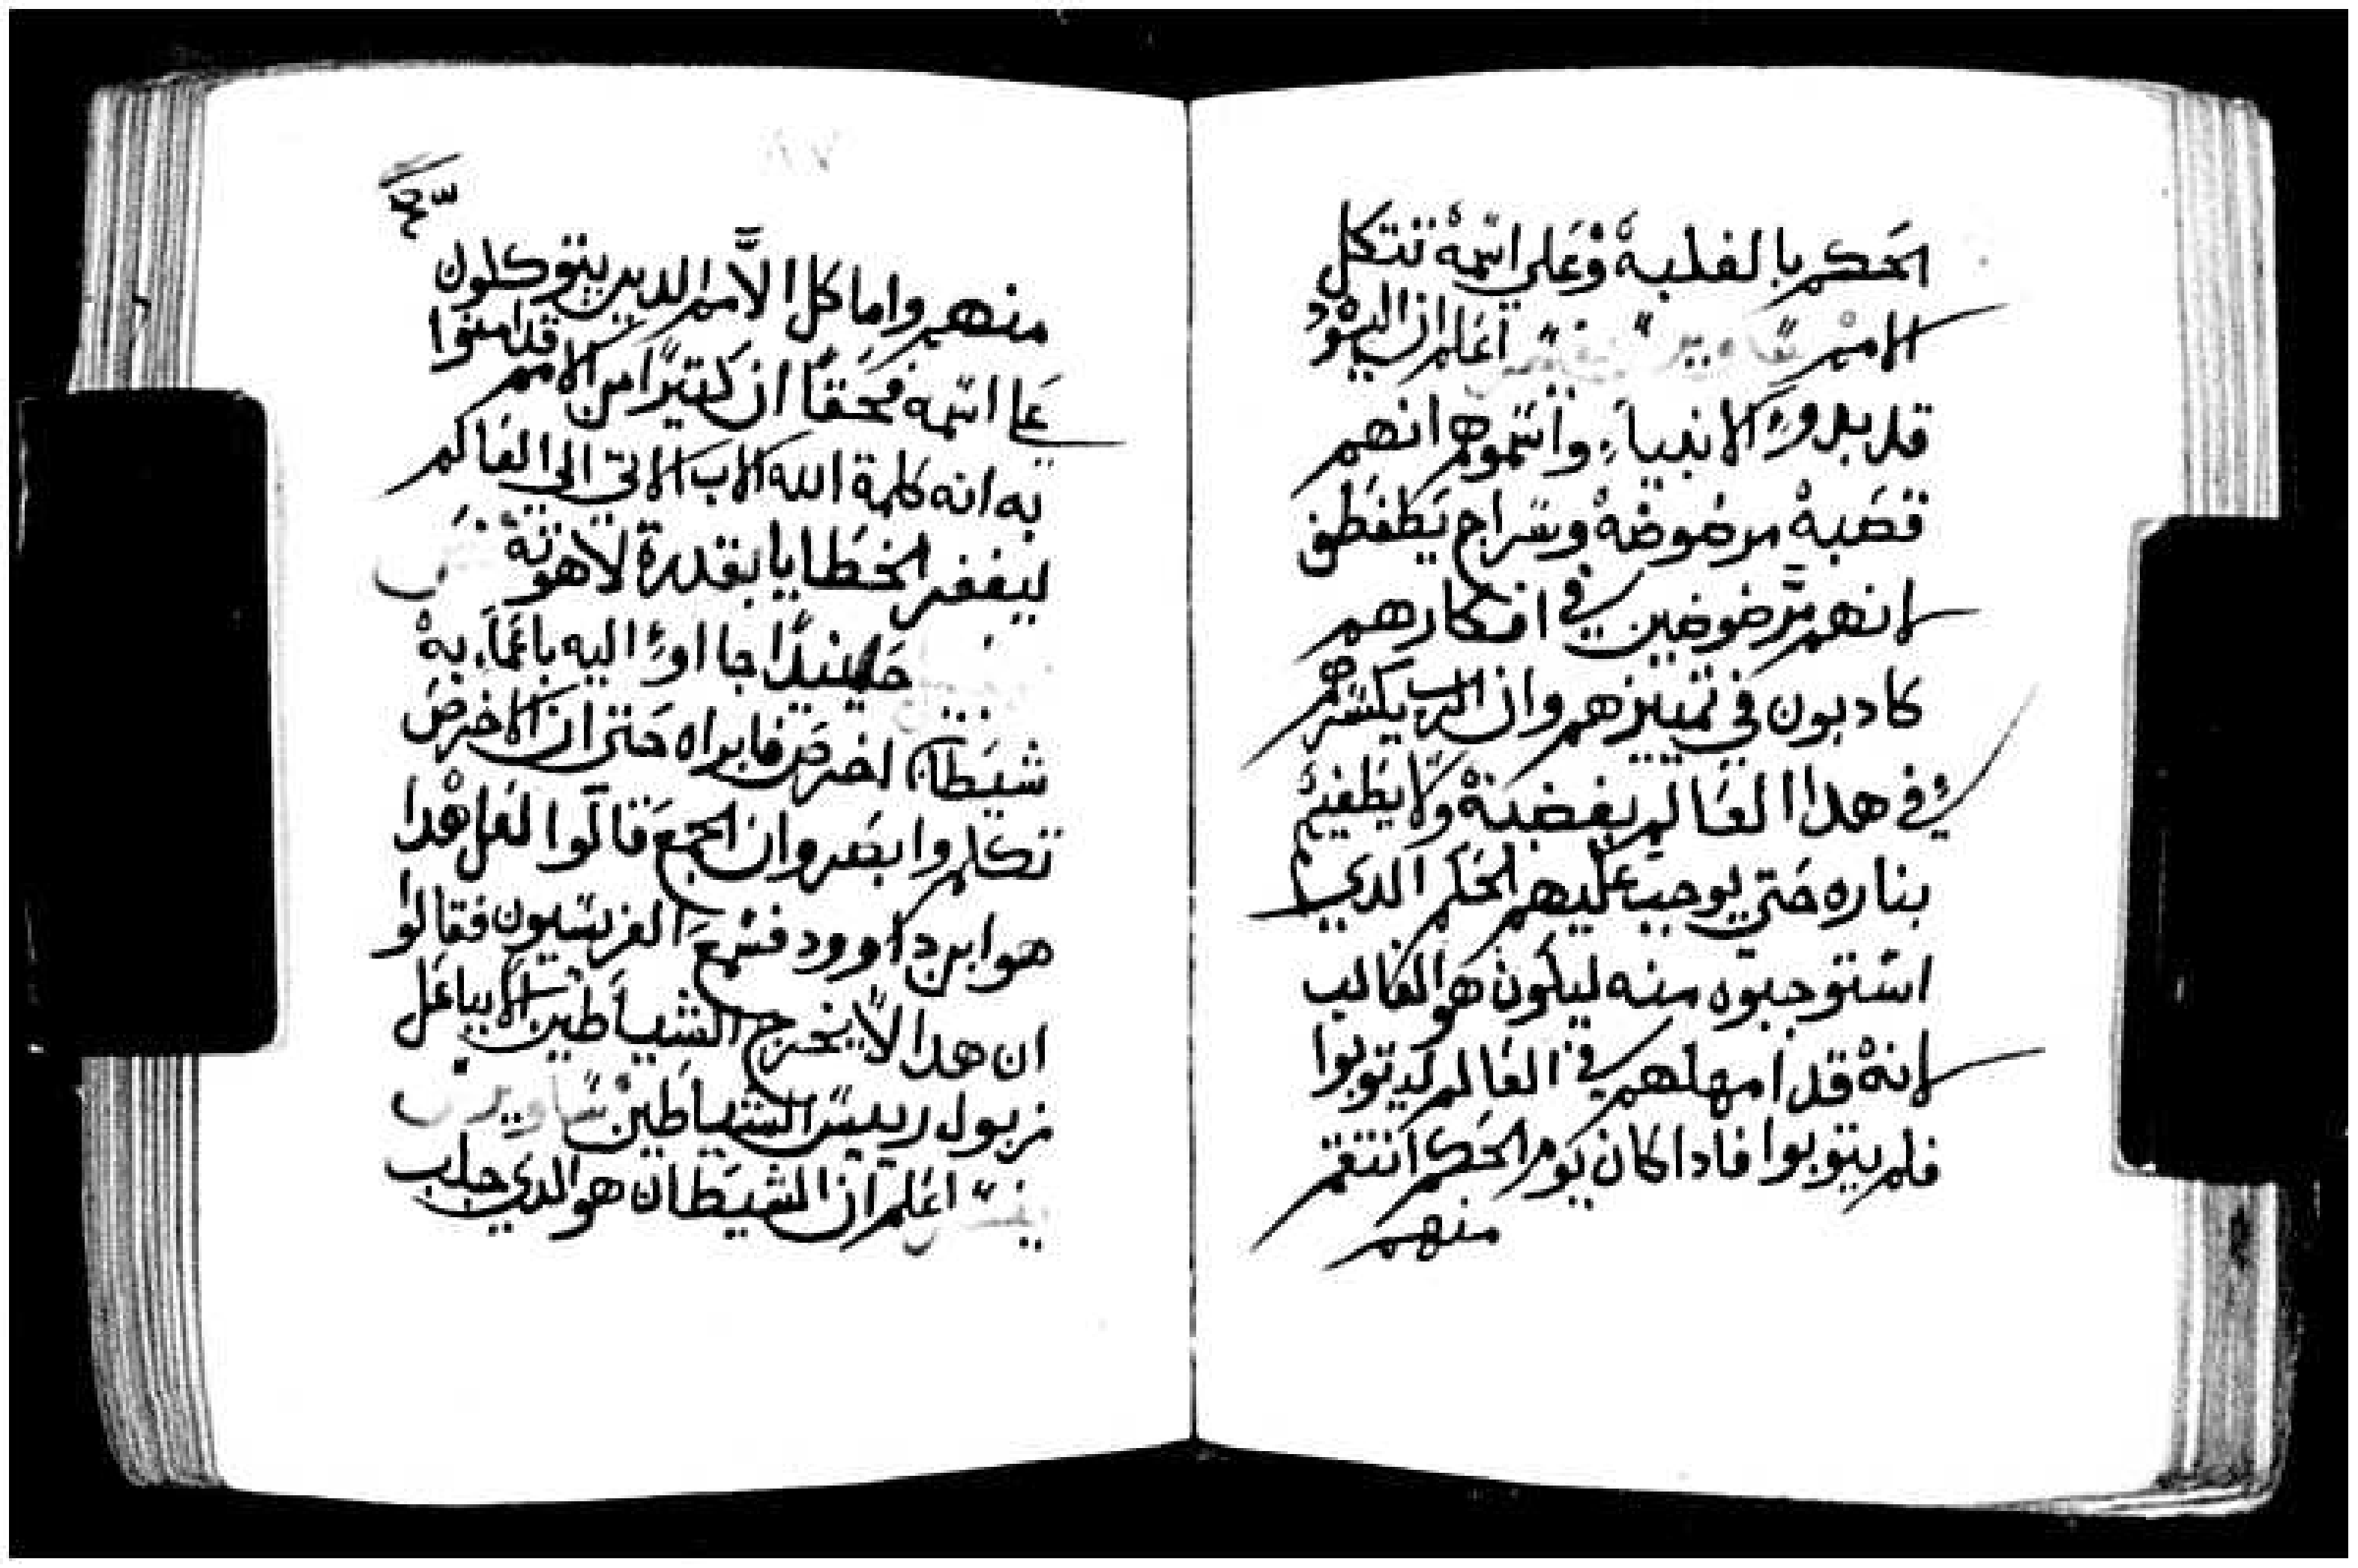 الحكم بالغلبة وعلي اسمه تتكل
الامم تفسير اعلم ان اليهود
قد بدوا الانبيا واسموهم انهم
قصبة مرضوضة وسراج يطفطف
لانهم مرضوضين في افكارهم
كادبون في تمييزهم وان الرب يكسرهم
في هدا العالم بغضبة ولا يطفيهم
بناره حتي يوجب عليهم الحكم الدي
استوجبوه منه ليكون هو الغالب
لانه قد امهلهم في العالم ليتوبوا
فلم يتوبوا فادا كان يوم الحكم انتقم
منهم
منهم واما كل الامم الدين يتوكلون
علي اسمه فحقا ان كتيرا من الامم قد امنوا
به انه كلمة الله الاب الاتي الي العالم
ليغفر الخطايا بقدرة لاهوته
حينيدا جااوا اليه باعما به
شيطان اخرص فابراه حتي ان الاخرص
تكلم وابصر وان الجمع قالوا لعل هدا
هو ابن داوود فسمع الفريسيون فقالوا
ان هدا لا يخرج الشياطين الا بباعل
زبول رييس الشياطين ساويرس
يفسر اعلم ان الشيطان هو الدي جلب